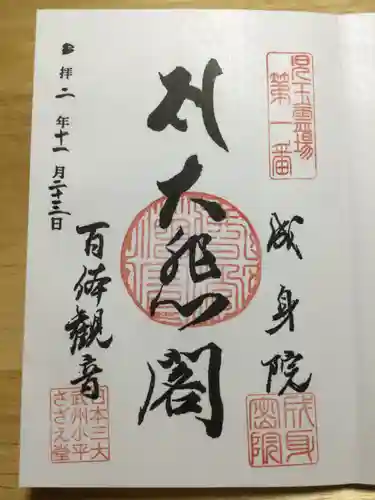 児玉霊場
第一番
成身院
成身
密院
大悲閣
百体觀音
日本三大
武州小平
さざえ堂
参拝 二年十一月二十三日